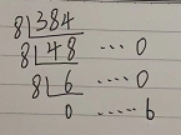 8 384
8 48 ···· 0
8 6 ···· 0
0 ····· 6